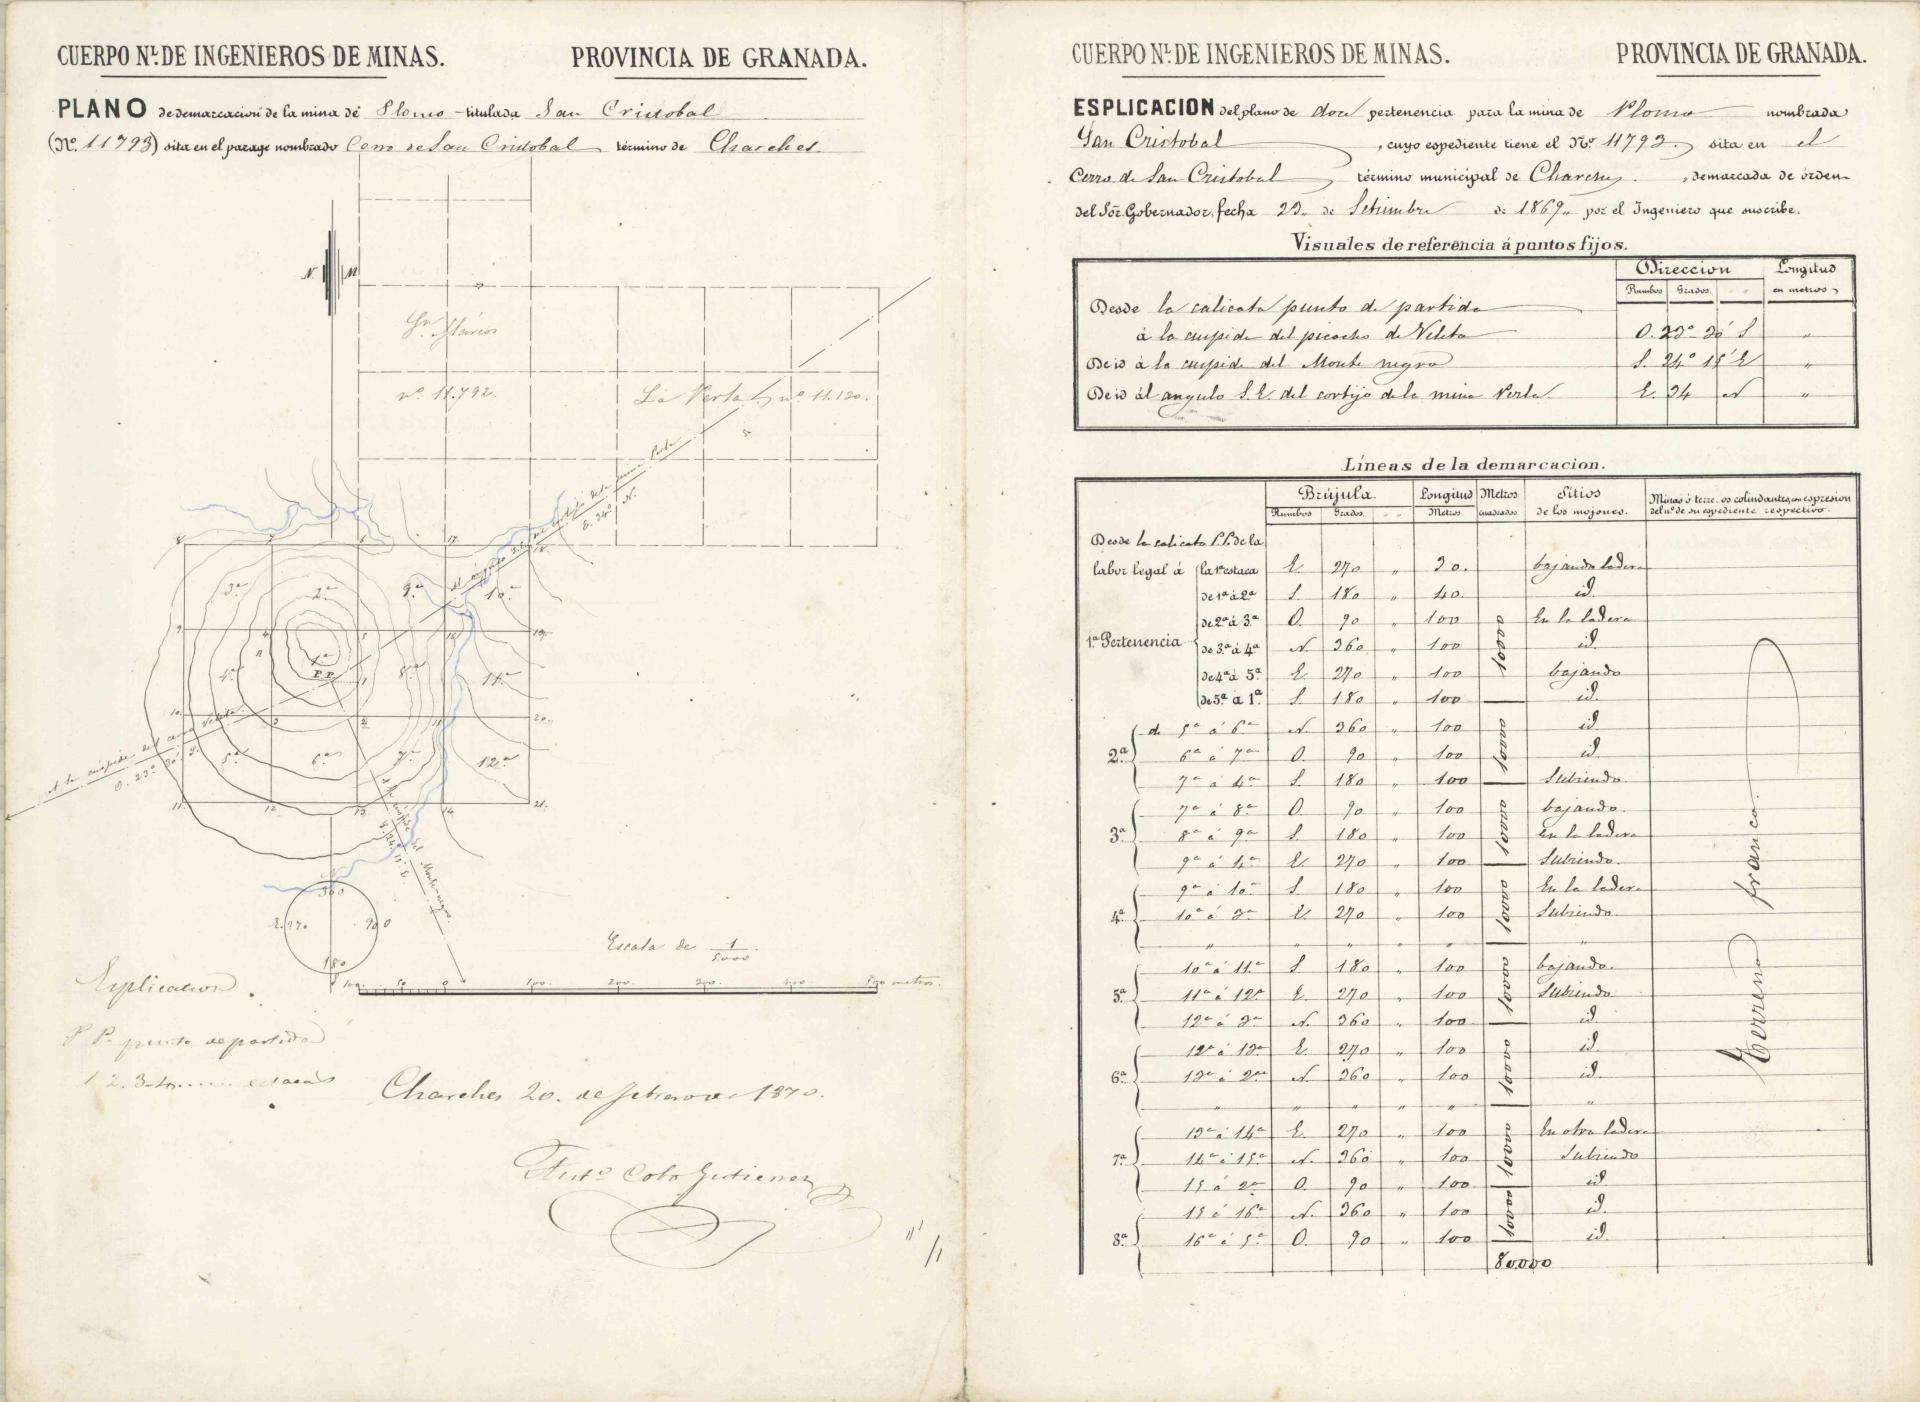 CUERPO Nl. DE INGENIEROS DE MINAS. PROVINCIA DE GRANADA.
PLANO de demarcacion de la mina de Plomo titulada San Cristobal
(No. 11793) sita en el parage nombrado Cerro de San Cristobal término de Charches.
N. M
Sn. Márcos
no. 11.792.
La Perla no. 11.120.
E. 34o. N.
8 7 6 17 18
3a 2a 9a 10a
9 4 5 16 19
4a 1a 8a 11a
P.P. 1
10 3 2 15 20
5a 6a 7a 12a
O. 23o 30' S.
11 12 13 14 21
S. 24o 15' E.
360
E. 270 90 O
180
Escala de 1/5000
100 50 0 100 200 300 400 500 metros.
Esplicacion.
P. P. punto de partida
1. 2. 3. ...... estacas
Charches 20. de febrero de 1870.
Anto. Cobo Gutierrez
CUERPO Nl. DE INGENIEROS DE MINAS. PROVINCIA DE GRANADA.
ESPLICACION del plano de doce pertenencia para la mina de Plomo nombrada
San Cristobal, cuyo espediente tiene el No. 11793. sita en el
Cerro de San Cristobal término municipal de Charches, demarcada de órden
del Sór. Gobernador, fecha 23 de Setiembre de 1869 por el Ingeniero que suscribe.
Visuales de referencia á puntos fijos.
Direccion Longitud
Rumbos Grados en metros
Desde la calicata punto de partida
á la cuspide del picacho de Veleta O. 23o 30' S "
De id á la cuspide del Monte negro S. 24o 15' E "
De id ál angulo S.E. del cortijo de la mina Perla E. 34 N "
Líneas de la demarcacion.
Brújula. Longitud Metros Sítios Minas ó terrenos colindantes, con espresion
Rumbos Grados Metros. cuadrados de los mojones. del no. de su espediente respectivo.
Desde la calicata P.P. de la
labor legal á la 1a estaca E. 270 " 30. bajando ladera
de 1a á 2a S. 180 " 40. id.
de 2a á 3a O. 90 " 100 En la ladera
1a Pertenencia de 3a á 4a N. 360 " 100 10000 id.
de 4a á 5a E. 270 " 100 bajando
de 5a á 1a S. 180 " 100 id.
de 5a á 6a N. 360 " 100 id
2a 6a á 7a O. 90 " 100 10000 id
7a á 4a S. 180 " 100 Subiendo.
7a á 8a O. 90 " 100 bajando.
3a 8a á 9a S. 180 " 100 10000 en la ladera
9a á 4a E. 270 " 100 Subiendo.
9a á 10a S. 180 " 100 En la ladera
4a 10a á 3a E. 270 " 100 10000 Subiendo.
" " " " " "
10a á 11a S 180 " 100 bajando.
5a 11a á 12a E. 270 " 100 10000 Subiendo.
12a á 3a N. 360 " 100 id
12a á 13a E. 270 " 100 id
6a 13a á 2a N. 360 " 100 10000 id
" " " " " "
13a á 14a E. 270 " 100 En otra ladera
7a 14a á 15a N. 360 " 100 10000 Subiendo
15 á 2a O. 90 " 100 id
15 á 16a N. 360 " 100 id
8a 16a á 5a O. 90 " 100 10000 id.
80.000
Terreno franco